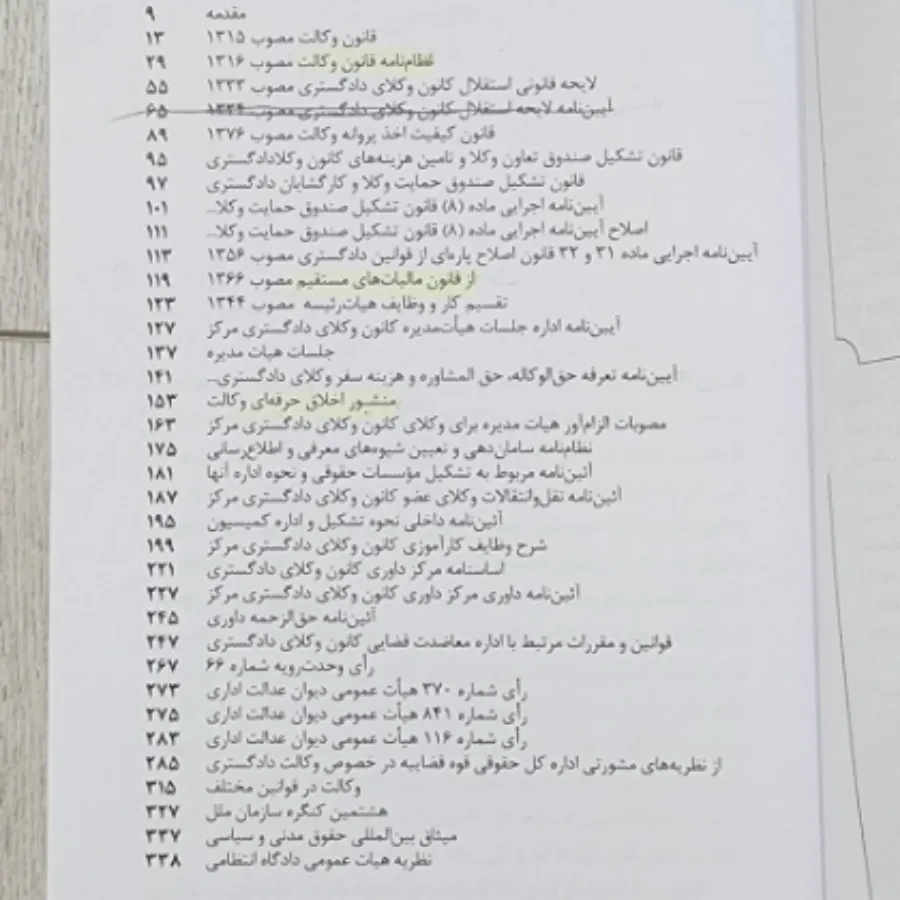 مقدمه ۹
قانون وکالت مصوب ۱۳۱۵ ۱۳
نظام‌نامه قانون وکالت مصوب ۱۳۱۶ ۲۹
لایحه قانونی استقلال کانون وکلای دادگستری مصوب ۱۳۳۳ ۵۵
آیین‌نامه لایحه استقلال کانون وکلای دادگستری مصوب ۱۳۳۴ ۶۵
قانون کیفیت اخذ پروانه وکالت مصوب ۱۳۷۶ ۸۹
قانون تشکیل صندوق تعاون وکلا و تامین هزینه‌های کانون وکلادادگستری ۹۵
قانون تشکیل صندوق حمایت وکلا و کارگشایان دادگستری ۹۷
آیین‌نامه اجرایی ماده (۸) قانون تشکیل صندوق حمایت وکلا... ۱۰۱
اصلاح آیین‌نامه اجرایی ماده (۸) قانون تشکیل صندوق حمایت وکلا... ۱۱۱
آیین‌نامه اجرایی ماده ۳۱ و ۳۲ قانون اصلاح پاره‌ای از قوانین دادگستری مصوب ۱۳۵۶ ۱۱۳
از قانون مالیات‌های مستقیم مصوب ۱۳۶۶ ۱۱۹
تقسیم کار و وظایف هیات‌رئیسه مصوب ۱۳۴۴ ۱۲۳
آیین‌نامه اداره جلسات هیأت‌مدیره کانون وکلای دادگستری مرکز ۱۲۷
جلسات هیات مدیره ۱۳۷
آیین‌نامه تعرفه حق‌الوکاله، حق المشاوره و هزینه سفر وکلای دادگستری... ۱۴۱
منشور اخلاق حرفه‌ای وکالت ۱۵۳
مصوبات الزام‌آور هیات مدیره برای وکلای کانون وکلای دادگستری مرکز ۱۶۳
نظام‌نامه سامان‌دهی و تعیین شیوه‌های معرفی و اطلاع‌رسانی ۱۷۵
آئین‌نامه مربوط به تشکیل مؤسسات حقوقی و نحوه اداره آنها ۱۸۱
آئین‌نامه نقل‌وانتقالات وکلای عضو کانون وکلای دادگستری مرکز ۱۸۷
آئین‌نامه داخلی نحوه تشکیل و اداره کمیسیون ۱۹۵
شرح وظایف کارآموزی کانون وکلای دادگستری مرکز ۱۹۹
اساسنامه مرکز داوری کانون وکلای دادگستری ۲۲۱
آئین‌نامه داوری مرکز داوری کانون وکلای دادگستری مرکز ۲۲۷
آئین‌نامه حق‌الزحمه داوری ۲۴۵
قوانین و مقررات مرتبط با اداره معاضدت قضایی کانون وکلای دادگستری ۲۴۷
رأی وحدت‌رویه شماره ۶۶ ۲۶۷
رأی شماره ۳۷۰ هیأت عمومی دیوان عدالت اداری ۲۷۳
رأی شماره ۸۴۱ هیأت عمومی دیوان عدالت اداری ۲۷۵
رأی شماره ۱۱۶ هیأت عمومی دیوان عدالت اداری ۲۸۳
از نظریه‌های مشورتی اداره کل حقوقی قوه قضاییه در خصوص وکالت دادگستری ۲۸۵
وکالت در قوانین مختلف ۳۱۵
هشتمین کنگره سازمان ملل ۳۲۷
میثاق بین‌المللی حقوق مدنی و سیاسی ۳۳۷
نظریه هیات عمومی دادگاه انتظامی ۳۳۸